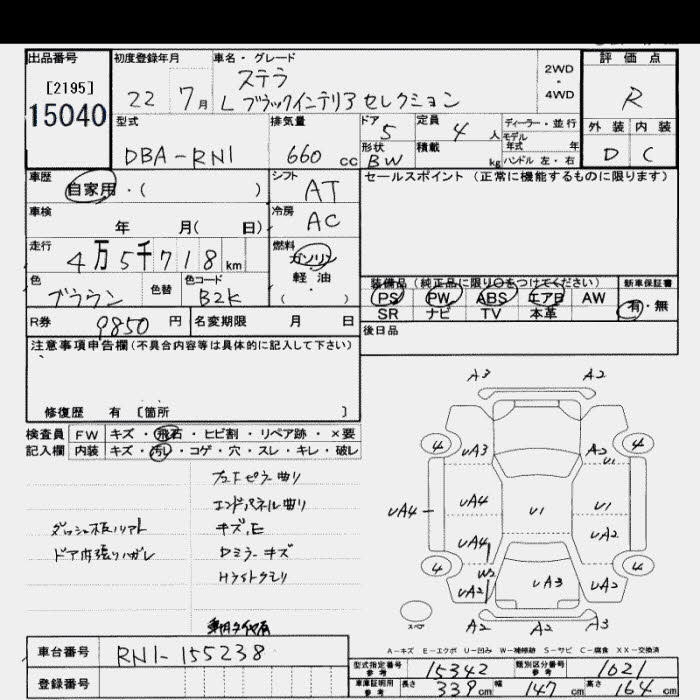 出品番号
[2195]
15040
初度登録年月
22 7月
車名・グレード
ステラ
L ブラックインテリアセレクション
2WD
・
4WD
評価点
R
外装 内装
D C
型式
DBA-RN1
排気量
660 cc
ドア 5
定員 4人
形状 BW
積載 kg
ディーラー・並行
モデル
年式 年
ハンドル 左・右
車歴
自家用・( )
シフト AT
セールスポイント (正常に機能するものに限ります)
車検
年 月( 日)
冷房 AC
走行
4万5千718 km
燃料
ガソリン
軽・油
( )
色
ブラウン
色替
色コード
B2K
装備品 (純正品に限り○をつけてください)
新車保証書
PS PW ABS エアB AW
SR ナビ TV 本革
有・無
R券 9850 円
名変期限 月 日
後日品
注意事項申告欄(不具合内容等は具体的に記入して下さい)
修復歴 有 〔箇所 〕
検査員
記入欄
FW キズ・飛石・ヒビ割・リペア跡・×要
内装 キズ・汚レ・コゲ・穴・スレ・キレ・破レ
エンドパネル曲り
キズ、E
ドア内張りハガレ
Dミラーキズ
A3 A2
4 4
UA3 A2
U1
UA4 UA4 U1 U1
UA4 UA2
4 4
W2
UA2 UA3 UA2
スペア
A2 A2 A3
A-キズ E-エクボ U-凹み W-補修跡 S-サビ C-腐食 XX-交換済
車台番号
RN1-155238
登録番号
型式指定番号
参考
15342
類別区分番号
参考
1021
車庫証明用
参考
長さ 339 cm
幅 147 cm
高さ 164 cm